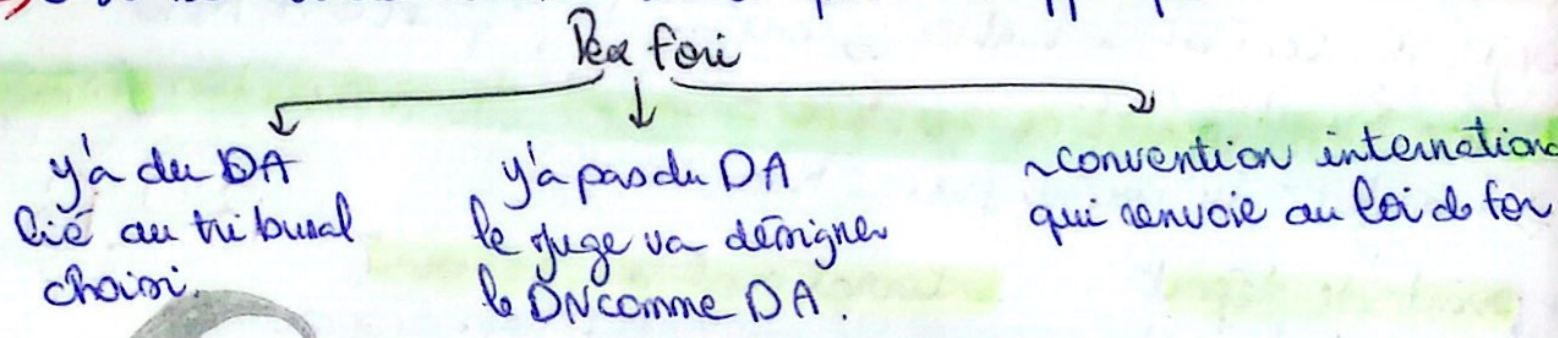 Lex fori
y'a du DA
lié au tribunal
choisi.
y'a pas du DA
le juge va désigner
le DN comme DA.
~convention internationa
qui renvoie au loi de for